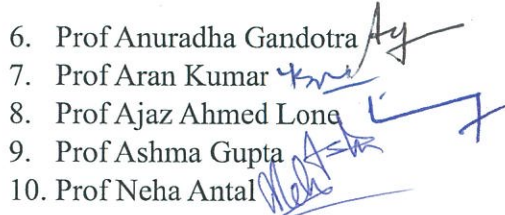 6. Prof Anuradha Gandotra
7. Prof Aran Kumar
8. Prof Ajaz Ahmed Lone
9. Prof Ashma Gupta
10. Prof Neha Antal